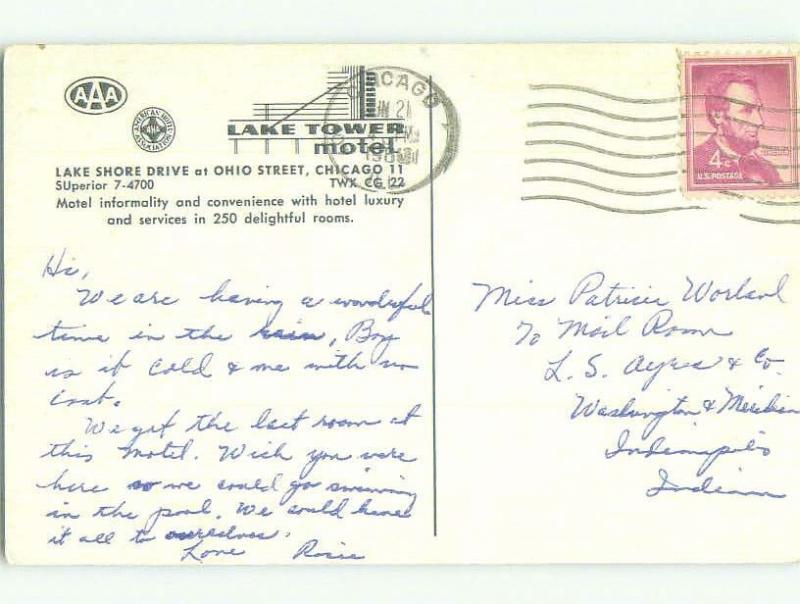 AAA
AMERICAN HOTEL ASSOCIATION
LAKE TOWER
motel
LAKE SHORE DRIVE at OHIO STREET, CHICAGO 11
SUperior 7-4700 TWX CG 22
Motel informality and convenience with hotel luxury
and services in 250 delightful rooms.
CHICAGO
JUN 21
PM
ILL
4c
U.S. POSTAGE
Hi,
We are having a wonderful
time in the rain, Boy
is it cold & me with no
coat.
We got the last room at
this motel. Wish you were
here so we could go swimming
in the pool. We could have
it all to ourselves.
Love Rosie
Miss Patricia Worland
% Mail Room
L. S. Ayres & Co.
Washington & Meridian
Indianapolis
Indiana